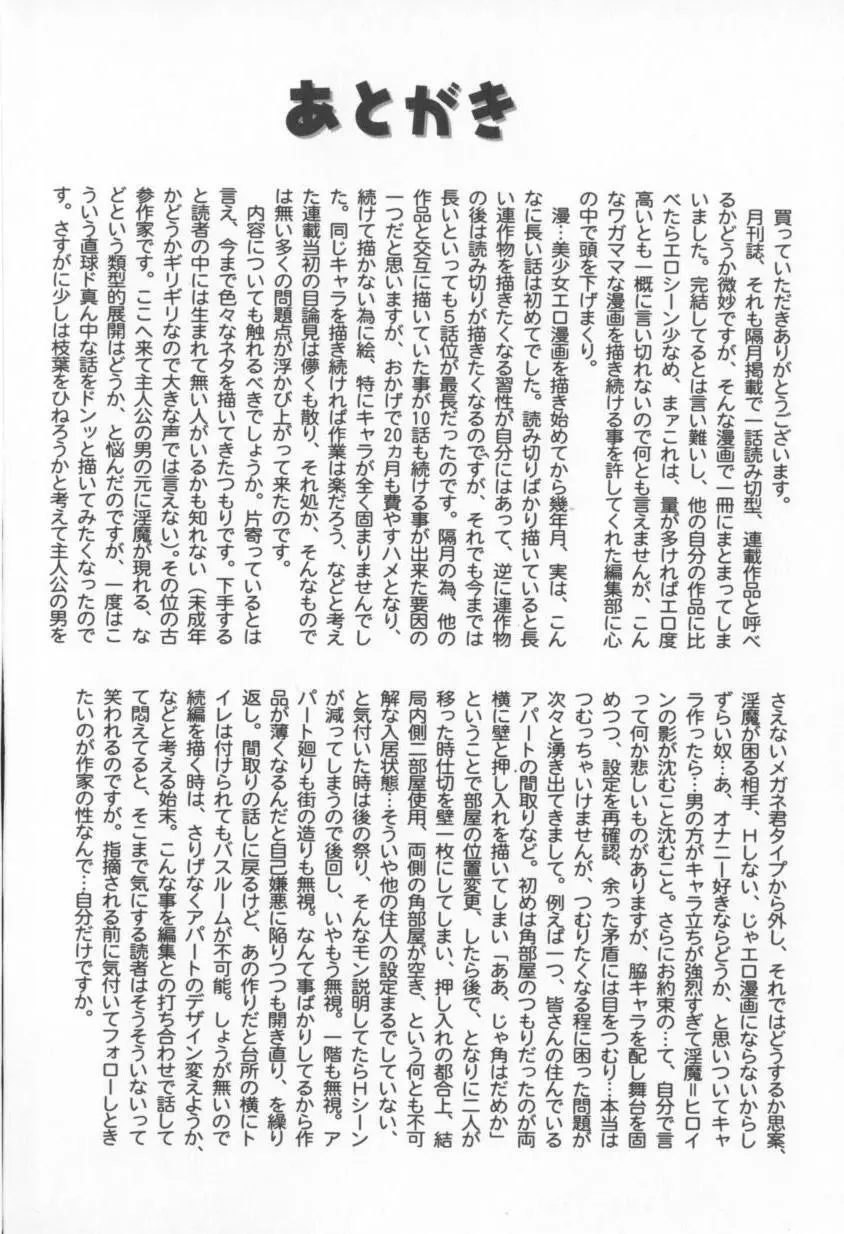 あとがき
買っていただきありがとうございます。
月刊誌、それも隔月掲載で一話読み切型、連載作品と呼べ
るかどうか微妙ですが、そんな漫画で一冊にまとまってしま
いました。完結してるとは言い難いし、他の自分の作品に比
べたらエロシーン少なめ、まァこれは、量が多ければエロ度
高いとも一概に言い切れないので何とも言えませんが、こん
なワガママな漫画を描き続ける事を許してくれた編集部に心
の中で頭を下げまくり。
漫…美少女エロ漫画を描き始めてから幾年月、実は、こん
なに長い話は初めてでした。読み切りばかり描いていると長
い連作物を描きたくなる習性が自分にはあって、逆に連作物
の後は読み切りが描きたくなるのですが、それでも今までは
長いといっても5話位が最長だったのです。隔月の為、他の
作品と交互に描いていた事が10話も続ける事が出来た要因の
一つだと思いますが、おかげで20カ月も費やすハメとなり、
続けて描かない為に絵、特にキャラが全く固まりませんでし
た。同じキャラを描き続ければ作業は楽だろう、などと考え
た連載当初の目論見は儚くも散り、それ処か、そんなもので
は無い多くの問題点が浮かび上がって来たのです。
内容についても触れるべきでしょうか。片寄っているとは
言え、今まで色々なネタを描いてきたつもりです。下手する
と読者の中には生まれて無い人がいるかも知れない（未成年
かどうかギリギリなので大きな声では言えない）。その位の古
参作家です。ここへ来て主人公の男の元に淫魔が現れる、な
どという類型的展開はどうか、と悩んだのですが、一度はこ
ういう直球ド真ん中な話をドンッと描いてみたくなったので
す。さすがに少しは枝葉をひねろうかと考えて主人公の男を
さえないメガネ君タイプから外し、それではどうするか思案、
淫魔が困る相手、Hしない、じゃエロ漫画にならないからし
ずらい奴…あ、オナニー好きならどうか、と思いついてキャ
ラ作ったら…男の方がキャラ立ちが強烈すぎて淫魔＝ヒロイ
ンの影が沈むこと沈むこと。さらにお約束の…て、自分で言
って何か悲しいものがありますが、脇キャラを配し舞台を固
めつつ、設定を再確認、余った矛盾には目をつむり…本当は
つむっちゃいけませんが、つむりたくなる程に困った問題が
次々と湧き出てきまして。例えば一つ、皆さんの住んでいる
アパートの間取りなど。初めは角部屋のつもりだったのが両
横に壁と押し入れを描いてしまい「ああ、じゃ角はだめか」
ということで部屋の位置変更、したら後で、となりに二人が
移った時仕切を壁一枚にしてしまい、押し入れの都合上、結
局内側二部屋使用、両側の角部屋が空き、という何とも不可
解な入居状態…そういや他の住人の設定まるでしていない、
と気付いた時は後の祭り、そんなモン説明してたらHシーン
が減ってしまうので後回し、いやもう無視。一階も無視。ア
パート廻りも街の造りも無視。なんて事ばかりしてるから作
品が薄くなるんだと自己嫌悪に陥りつつも開き直り、を繰り
返し。間取りの話しに戻るけど、あの作りだと台所の横にト
イレは付けられてもバスルームが不可能。しょうが無いので
続編を描く時は、さりげなくアパートのデザイン変えようか、
などと考える始末。こんな事を編集との打ち合わせで話して
て悶えてると、そこまで気にする読者はそうそういないって
笑われるのですが。指摘される前に気付いてフォローしとき
たいのが作家の性なんで…自分だけですか。